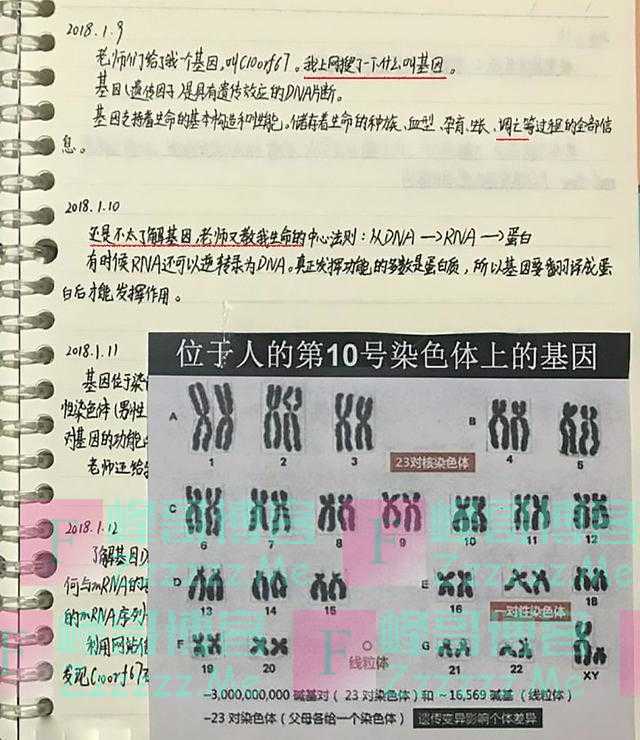 2018.1.9
老师们给了我一个基因,叫C10orf67。我上网搜了一下什么叫基因。
基因(遗传因子)是具有遗传效应的DNA片断。
基因支持着生命的基本构造和性能。储存着生命的种族、血型、孕育、生长、凋亡等过程的全部信
息。
2018.1.10
还是不太了解基因,老师又教我生命的中心法则:从DNA→RNA→蛋白
有时候RNA还可以逆转录为DNA。真正发挥功能的多数是蛋白质,所以基因要翻译成蛋
白后才能发挥作用。
2018.1.11
基因位于染
性染色体(男性
对基因的功能
老师还给
2018.1.12
了解基因
何与mRNA的
的mRNA序列
利用网站
发现C10orf67
位于人的第10号染色体上的基因
A
1
2
3
B
4
5
23对核染色体
C
6
7
8
9
10
11
12
D
13
14
15
E
16
18
一对性染色体
F
19
20
线粒体
G
21
22
XY
–3,000,000,000 碱基对( 23 对染色体)和 ~16,569 碱基 (线粒体)
–23 对染色体(父母各给一个染色体)
遗传变异影响个体差异
F
蜂鸟博客
Zzzzzz.Me
F
蜂鸟博客
Zzzzzz.Me
F
蜂鸟博客
Zzzzzz.Me
F
蜂鸟博客
Zzzzzz.Me